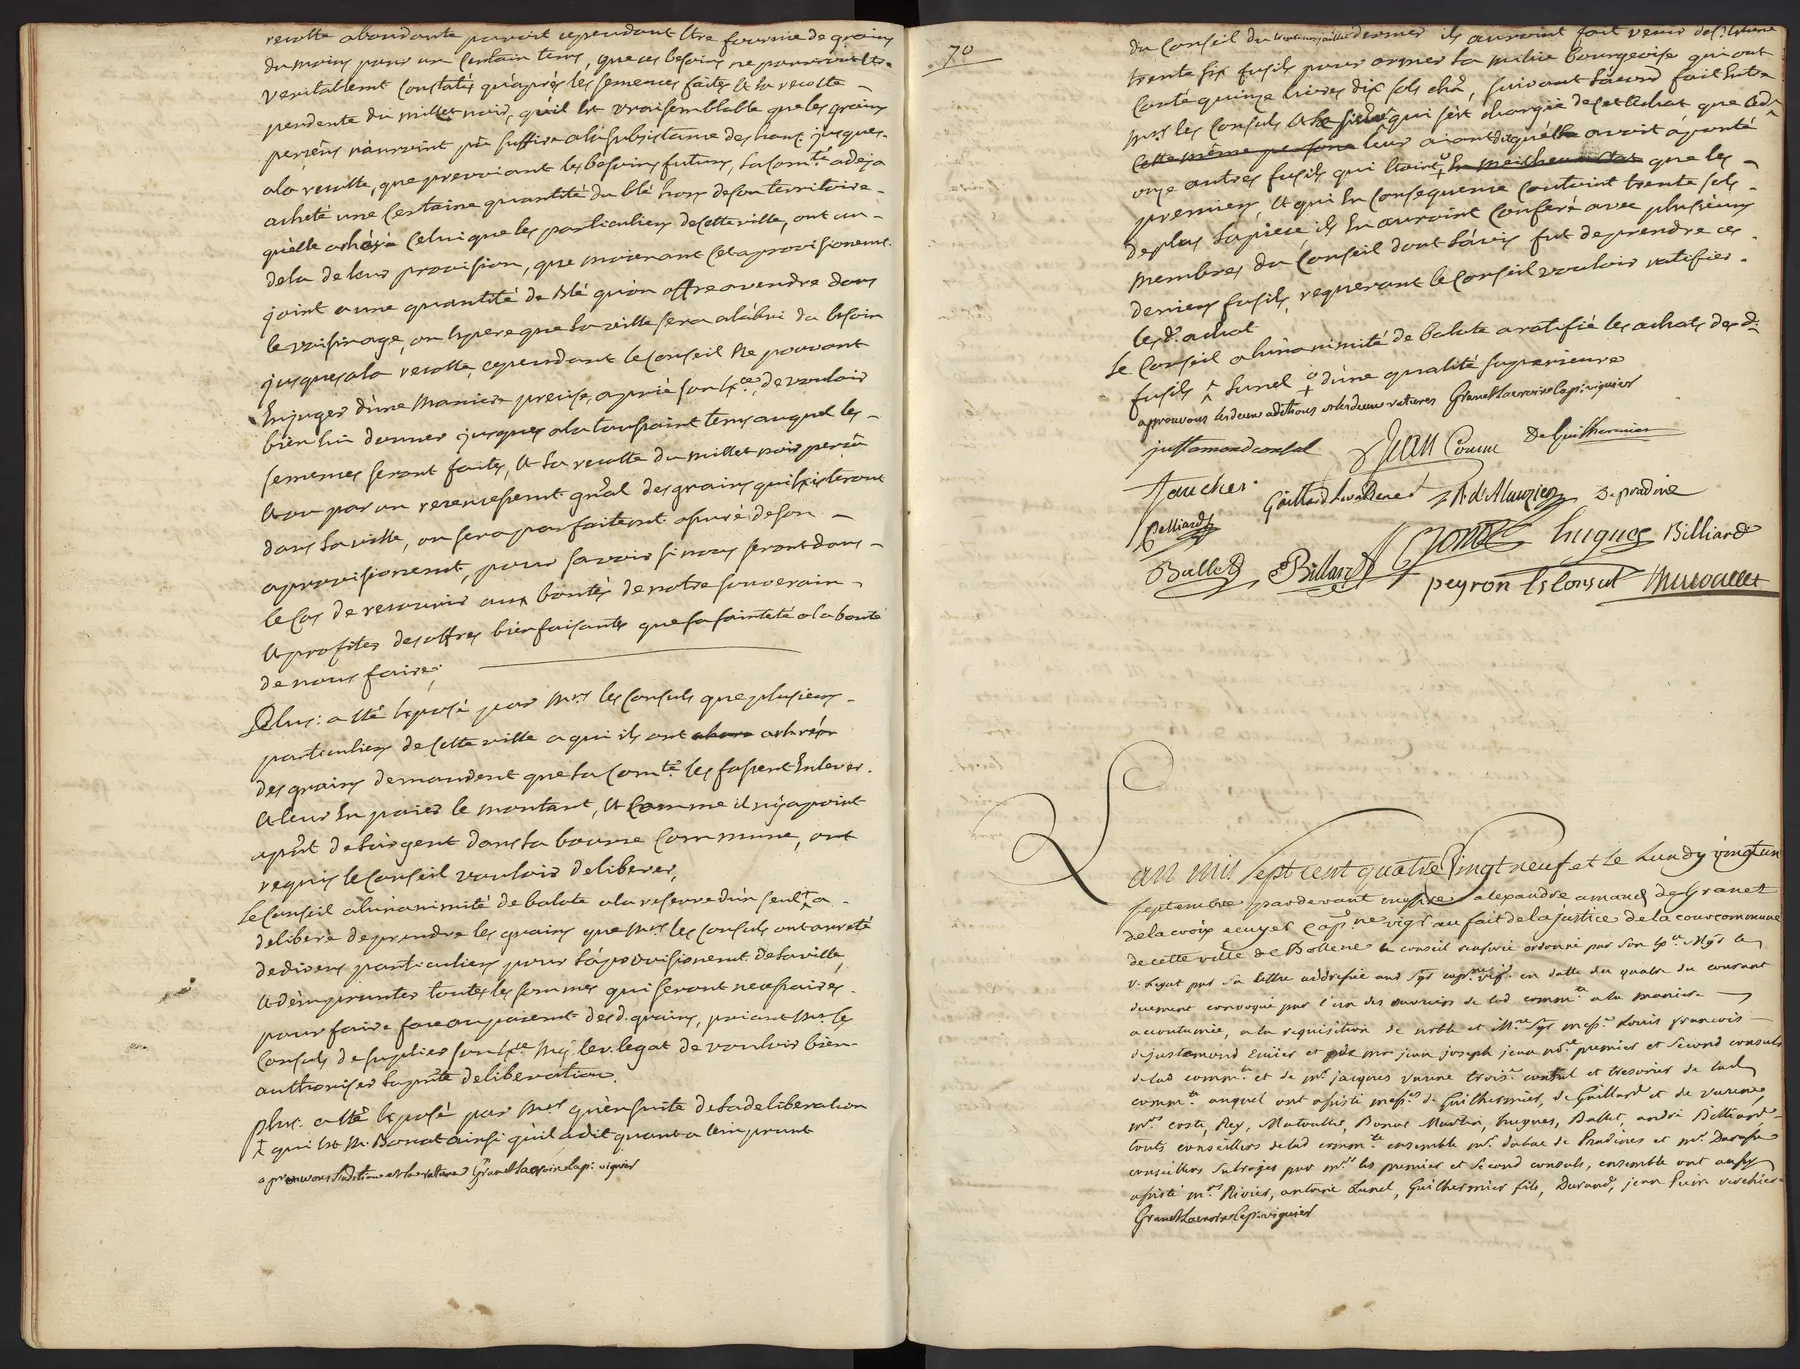 recolte abondante paroit cependant être fournie de grains
du moins pour un certain tems, que ces besoins ne pourront être
veritablemt constatés qu'aprés les semences faites et la recolte
pendente du millet noir, qu'il est vraisemblable que les grains
perçûs n'auroint pû suffire a la subsistance des hants jusques
a la recolte, que prevoiant les besoins futurs, la comté a deja
acheté une certaine quantité du blé hors de son territoire
qu'elle a celui que les particuliers de cette ville, ont au
dela de leur provision, que moienant cet aprovisionemt
joint a une quantité de blé qu'on offre a vendre dans
le voisinage, on espere que la ville sera a l'abri du besoin
jusques a la recolte, cependant le conseil ne pouvant
en juger d'une maniere precise, a prié son exce de vouloir
bien lui donner jusques a la toussaint tems auquel les
semences seront faites, et la recolte du millet noir perçûe
et ou par un recensement gñal des grains qui existeront
dans la ville, on sera parfaitemt assuré de son
aprovisionemt, pour savoir si nous seront dans
le cas de recourir aux bontés de notre souverain
et profiter des offres bienfaisantes que sa sainteté a la bonté
de nous faire;
Plus: a été exposé par Mrs les consuls que plusieurs
particuliers de cette ville a qui ils ont arhé
des grains demandent que la comté les fassent enlever
et leur en paier le montant, et comme il n'y a point
aprñt de l'argent dans la bourse commune, ont
requis le conseil vouloir deliberer,
Le conseil a l'unanimité de balote a la reserve d'un seul + a
deliberé de prendre les grains que Mrs les consuls ont arreté
de divers particuliers pour l'aprovisionemt de la ville,
et d'emprunter toutes les sommes qui seront necessaires
pour faire face au paiemt des d. grains, priant Mrs les
consuls de suplier son exce Mgr le v. legat de vouloir bien
authoriser la pñte deliberation.
plus. a été exposé par Mrs qu'ensuite de la deliberation
+ qui est Mr Bonat ainsi qu'il a dit quant a l'emprunt
aprouvons l'adition et la rature Granet Lacroix cape viguier
70
du conseil du trente un juillet dernier ils auroint fait venir de St. etiene
trente six fusils pour armer la milice bourgeoise qui ont
couté quinze livres dix sols chñ, suivant l'acord fait entre
Mrs les consuls et le qui s'est chargé de cet achat que led.
cette même persone leur aiant avoit aporté
onze autres fusils qui etoint que les
premiers, et qui en consequence coutoint trente sols
de plus la piece, ils en auroint conferé avec plusieurs
membres du conseil dont l'avis fut de prendre ces
derniers fusils, requerant le conseil vouloir ratifier
les d. achat
Le conseil a l'unanimité de balote a ratifié les achats des d.
fusils ^ Lunel + d'une qualité superieure
aprouvons les deux aditions et les deux ratures Granet Lacroix cape viguier
justamond consul Jean Consul De Guilhermier
Faucher Gaillard Lavaldene D'Alauzier De pradine
Belliard
Ballet Billard Hugues Billiard
peyron ex consul
L'an mil sept cent quatre vingt neuf et le Lundy vingt un
septembre pardevant messire alexandre amand de Granet
de la croix ecuyer capne vigr au fait de la justice de la cour commune
de cette ville de Bollene le conseil renforcé ordonné par son exce Mgr le
v. Legat par sa lettre addressée aud sgr capne vigr en datte du quatre du courant
duement convoqué par l'un des couriers de lad commté a la maniere
accoutumée, a la requisition de noble et Ilre sgr messre Louis francois
de justamond ecuier et de mr jean joseph jean nre premier et second consuls
de lad commté et de mr jacques varene troise consul et tresorier de lad
commté auquel ont assisté messrs de Guilhermier, de Gaillard et de varene,
mrs coste, Rey, Matoallet, Bonat Martin, hugues, Ballet, andré Belliard
touts conseillers de lad commté ensemble mr dalac de Pradines et mr
conseillers subrogés par mrs les premier et second consuls, ensemble ont aussy
assisté mrs Rivier, antoine Lunel, Guilhermier fils, Durand, jean
Granet Lacroix cape viguier